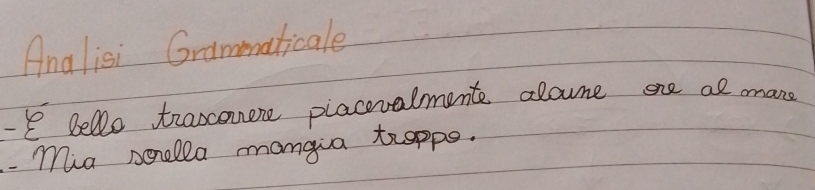 Analisi Grammaticale
- È bello trascorrere piacevalmente alcune ore al mare
- Mia sorella mangia troppo.